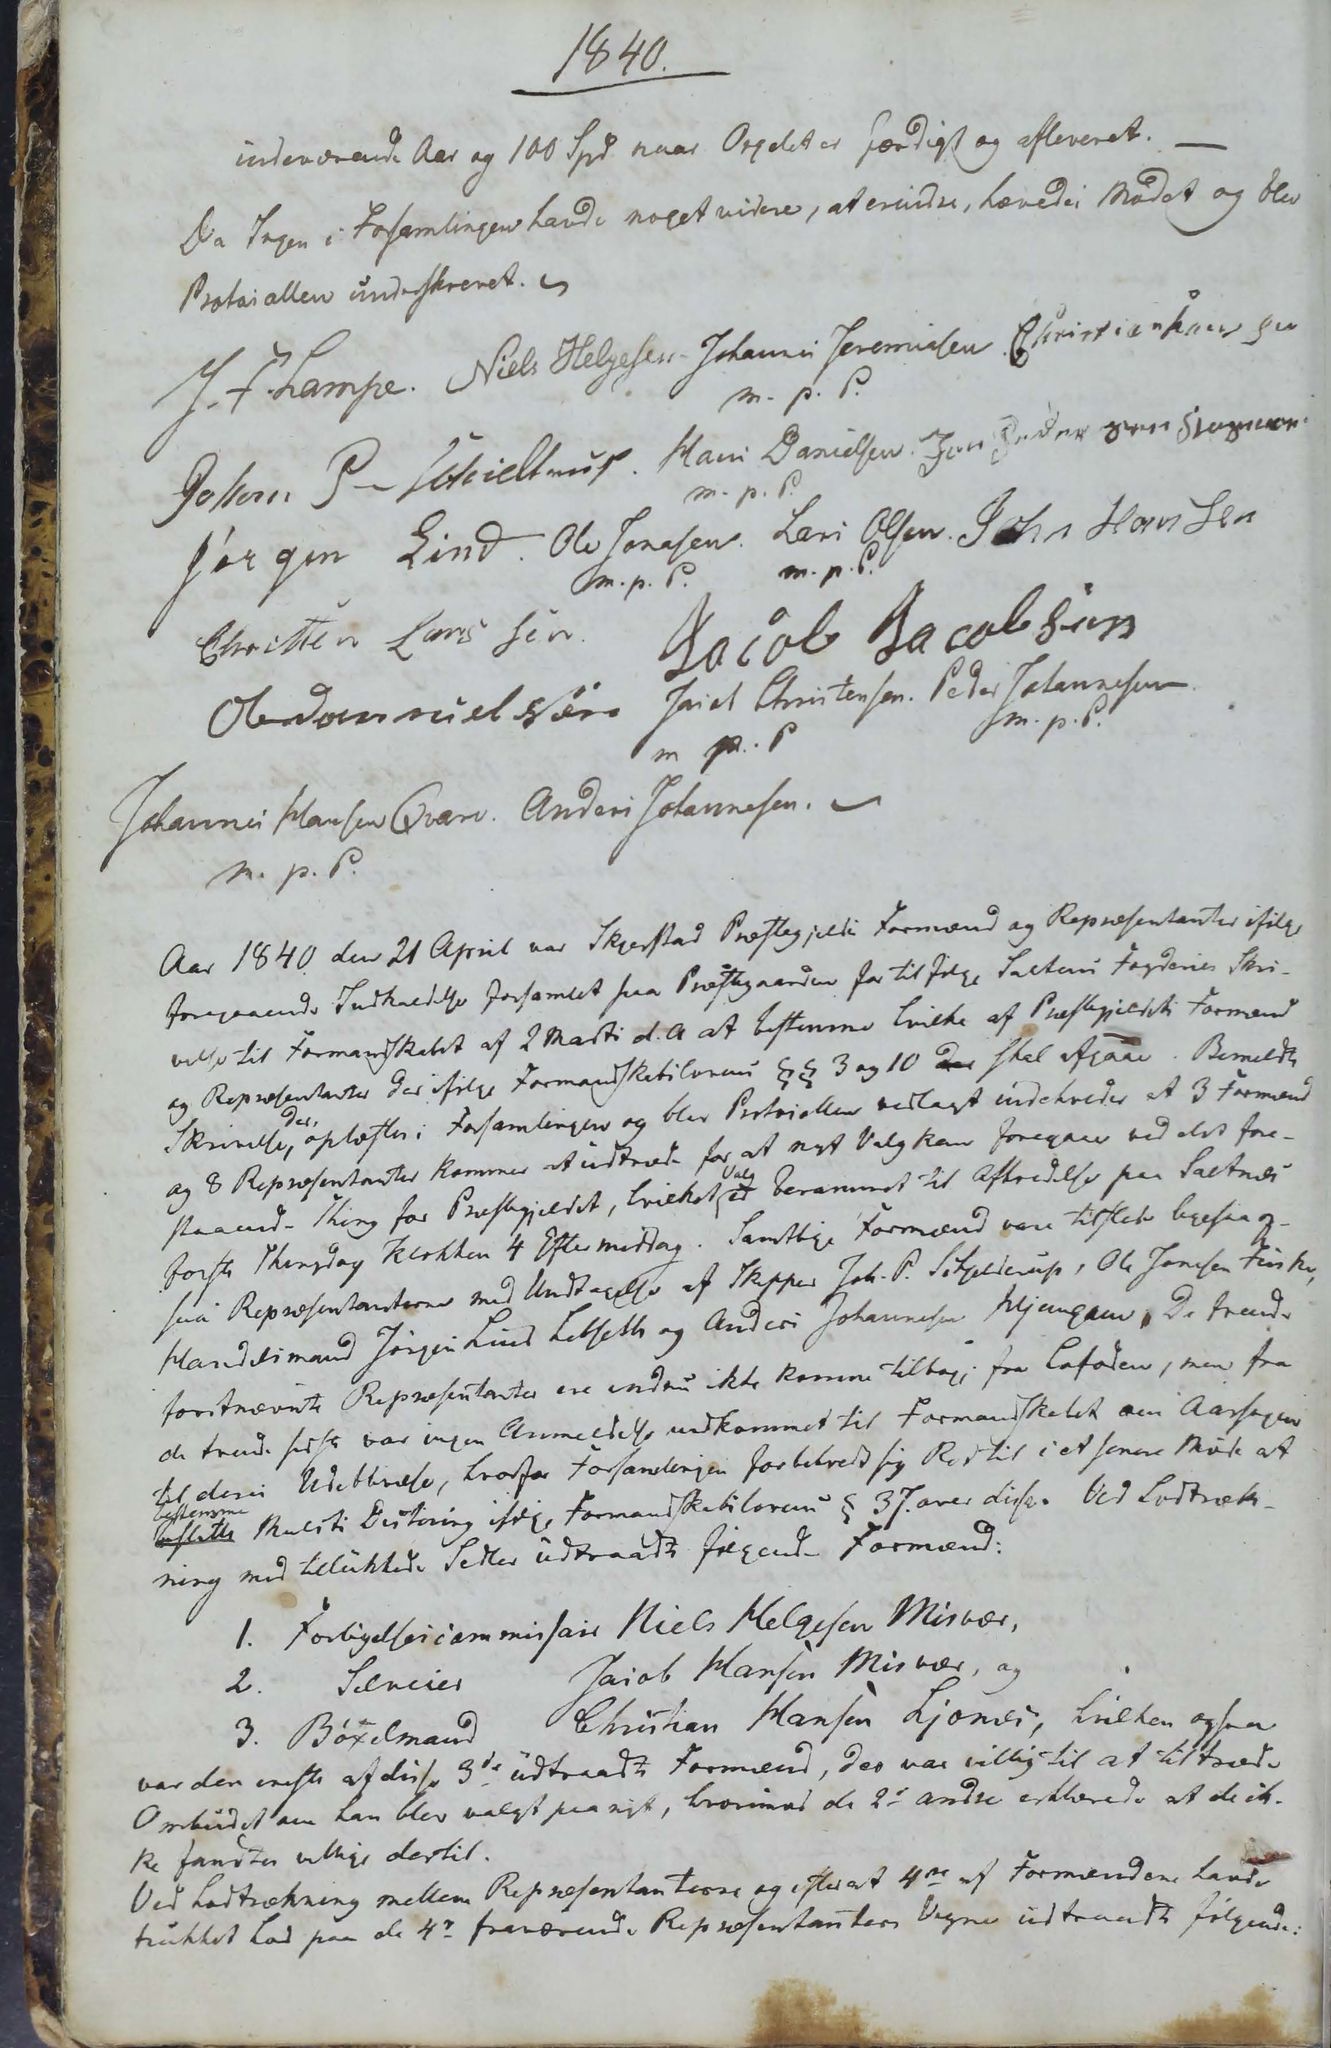 1840.
indeværende Aar og 100 Spd naar Orgelet er færdigt og afleveret. —
Da Ingen i Forsamlingen havde noget videre, at erindre, hævedes Mödet og blev
Protocollen underskrevet.
J. F. Lampe. Niels Helgesen Johannes Jeremiasen Christian Hansen
m. p. P.
Johan P. Schieldrup. Hans Danielsen. Jon Peder
m. p. P.
Jörgen Lind. Ole Jonasen. Lars Olsen. John Hansen
m. p. P. m. p. P.
Christen Lars sen. Jacob Jacobsen
Ole Danniel sen Jacob Christensen. Peder Johannesen
m. p. P m. p. P.
Johannes Hansen Qvæv. Anders Johannesen.
m. p. P.
Aar 1840 den 21 April var Skjerstad Præstegjelds Formænd og Repræsentanter ifölge
foregaaende Indkaldelse forsamlet paa Præstegaarden for tilfölge Saltens Fogderies Skri-
velse til Formandskabet af 2 Marti d. A at bestemme hvilke af Præstegjeldets Formænd
og Repræsentanter der ifölge Formandskabslovens §§ 3 og 10 der skal afgaae. Bemeldte
Skrivelse, der, oplæstes i Forsamlingen og blev Protocollen vedlagt indeholder at 3 Formænd
og 8 Repræsentanter kommer at udtræde for at nyt Valg kan foregaae ved det fore-
staaende Thing for Præstegjeldet, hvilket Valg er berammet til Afholdelse paa Saltnes
förste Thingdag Klokken 4 Eftermiddag. Samtlige Formænd vare tilstede ligesaa og-
saa Repræsentanterne med Undtagelse af Skipper Joh. P. Schjelderup, Ole Jonesen
Handelsmand Jörgen Lind og Anders Johannesen De tvende
förstnævnte Repræsentanter ere endnu ikke komne tilbage fra Lofoden, men fra
de tvende sidste var ingen Anmeldelse indkommet til Formandskabet om Aarsagen
til deres Udeblivelse, hvorfor Forsamlingen forbeholdt sig Ret til i et senere Möde at
bestemme Mulcts ifölge Formandskabslovens § 37. over disse. Ved Lodtræk-
ning med tillukkede Sedler udtraadte fölgende Formænd:
1. Forligelsescommissair Niels Helgesen Misvær,
2. Selveier Jacob Hansen Misvær, og
3. Böxelmand Christian Hansen Ljönes, hvilken ogsaa
var den eneste af disse 3de udtraadte Formænd, der var villig til at tiltræde
Ombudet om han blev valgt paa nyt, hvorimod de 2e andre erklærede at de ik-
ke fandtes villige dertil.
Ved Lodtrækning mellem Repræsentanterne og efter at 4re af Formændene havde
trukket Lod paa de 4re fraværende Repræsentanters Vegne udtraadte fölgende: